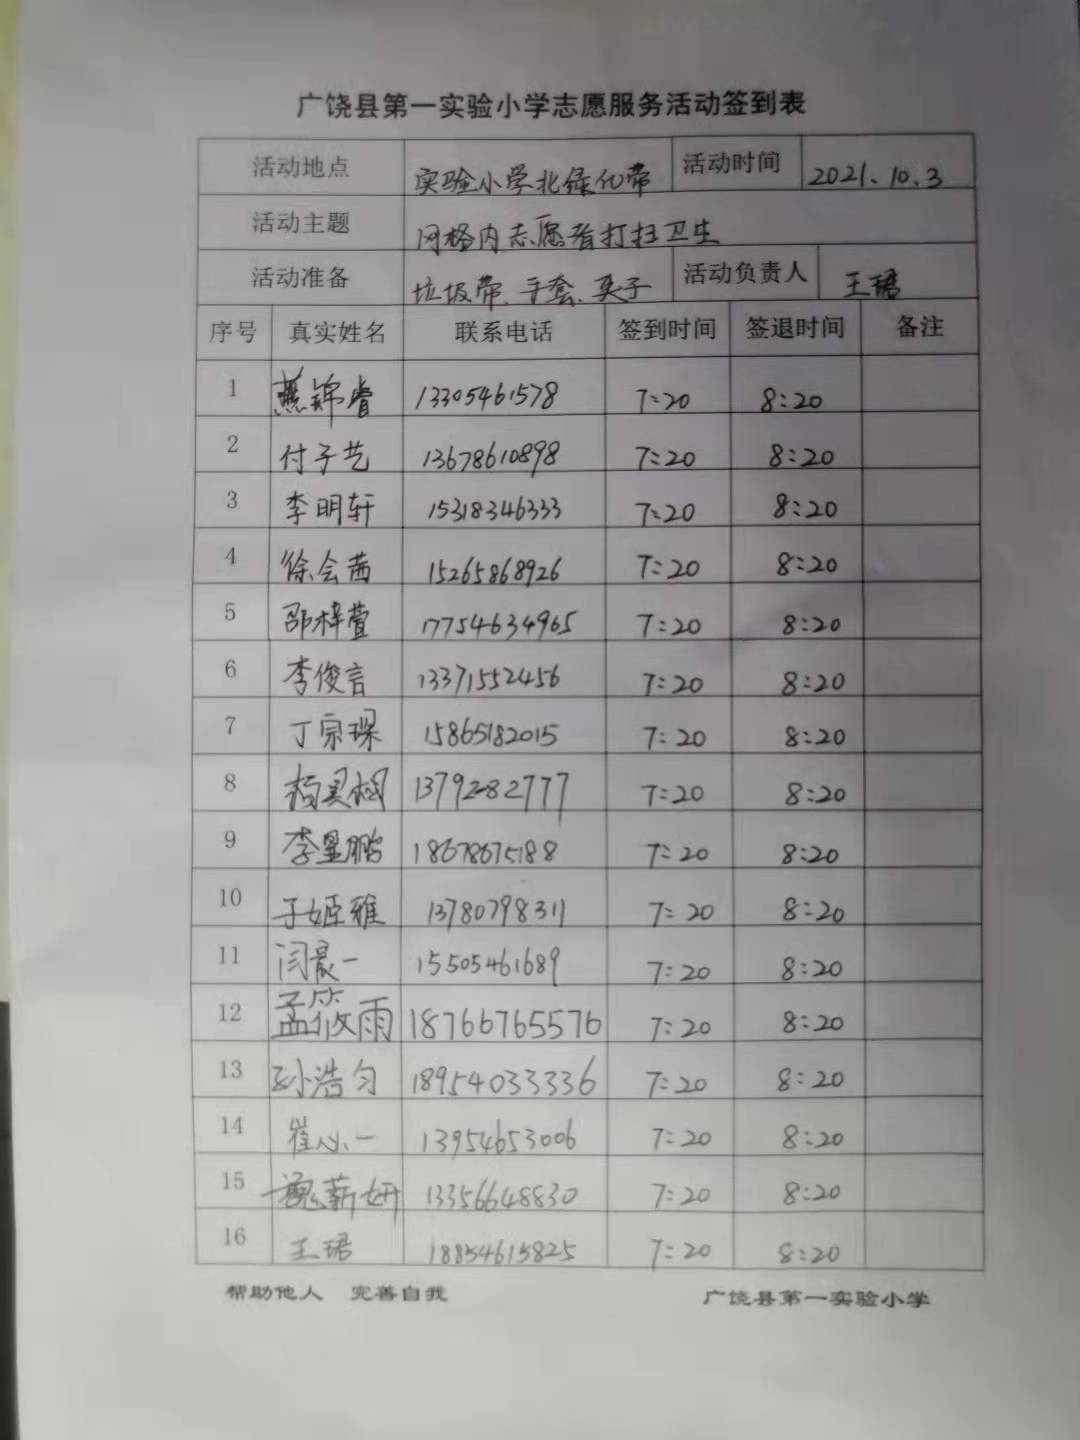 广饶县第一实验小学志愿服务活动签到表
活动地点 实验小学北绿化带 活动时间 2021.10.3
活动主题 网格内志愿者打扫卫生
活动准备 垃圾带、手套、夹子 活动负责人 王珺
序号 真实姓名 联系电话 签到时间 签退时间 备注
1 燕锦睿 13305461578 7:20 8:20
2 付子艺 13678610898 7:20 8:20
3 李明轩 15318346333 7:20 8:20
4 徐会茜 15265868926 7:20 8:20
5 邵梓萱 17754634965 7:20 8:20
6 李俊言 13371552456 7:20 8:20
7 丁宗琛 15865182015 7:20 8:20
8 13792282777 7:20 8:20
9 李昱鹏 18678675188 7:20 8:20
10 于姬雅 13780798311 7:20 8:20
11 闫晨一 15505461689 7:20 8:20
12 孟筱雨 18766765576 7:20 8:20
13 孙浩匀 18954033336 7:20 8:20
14 崔心一 13954653006 7:20 8:20
15 魏薪妍 13356648830 7:20 8:20
16 王珺 18854615825 7:20 8:20
帮助他人 完善自我 广饶县第一实验小学